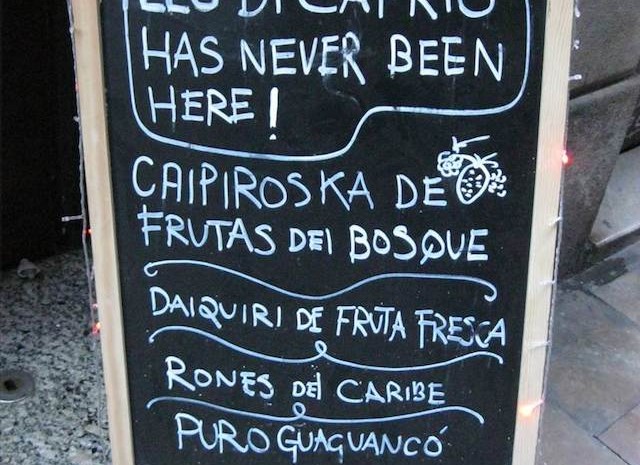 LEO DI CAPRIO
HAS NEVER BEEN
HERE!
CAIPIROSKA DE
FRUTAS DEl BOSQUE
DAIQUIRI DE FRUTA FRESCA
RONES DEl CARIBE
PURO GUAGUANCÓ